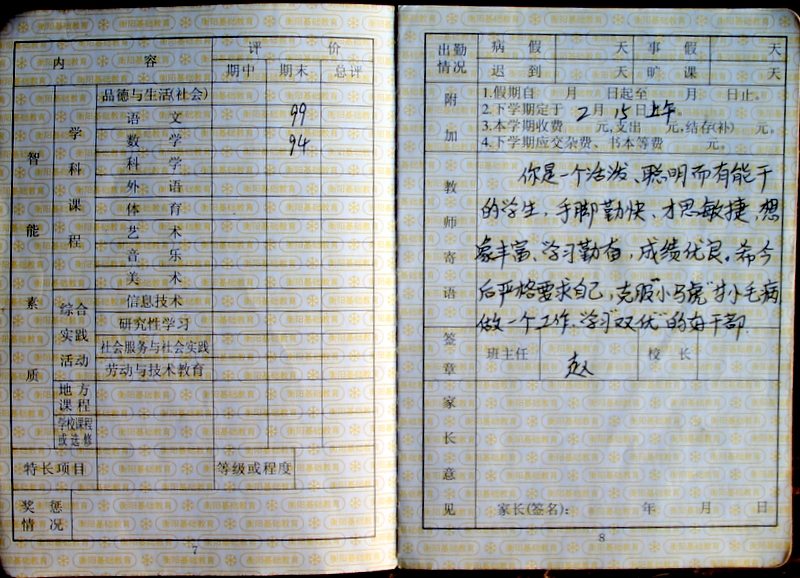 内 容 评 价
期中 期末 总评
智能素质
学科课程
品德与生活(社会)
语 文 99
数 学 94
科 学
外 语
体 育
艺 术
音 乐
美 术
综合实践活动
信息技术
研究性学习
社会服务与社会实践
劳动与技术教育
地方课程
学校课程或选修
特长项目 等级或程度
奖惩情况
7
出勤情况 病 假 天 事 假 天
迟 到 天 旷 课 天
附加
1.假期自 月 日起至 月 日止。
2.下学期定于 2月 15日上午。
3.本学期收费 元,支出 元,结存(补) 元。
4.下学期应交杂费、书本等费 元。
教师寄语
你是一个活泼、聪明而有能干
的学生，手脚勤快、才思敏捷，想
象丰富、学习勤奋，成绩优良。希今
后严格要求自己，克服“小马虎”小毛病
做一个工作，学习“双优”的好干部.
签章 班主任 赵 校 长
家长意见
家长(签名): 年 月 日
8